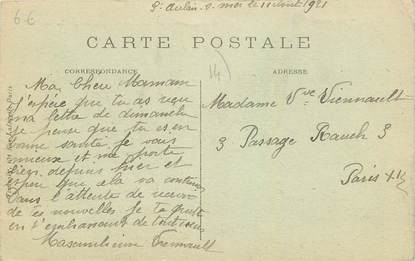 66
St Aubin s. mer le 11 août 1921
CARTE POSTALE
CORRESPONDANCE
ADRESSE
14
Ma Chère Maman
j'espère que tu as reçu
ma lettre de dimanche
je pense que tu es en
bonne santé, je vais
mieux et me porte
bien, depuis hier et
espère que cela va continuer
Dans l'attente de recevoir
de tes nouvelles je te quitte
en t'embrassant de tout cœur
Viennault
Madame Vve Viennault
3 Passage Rauch 3
Paris XI